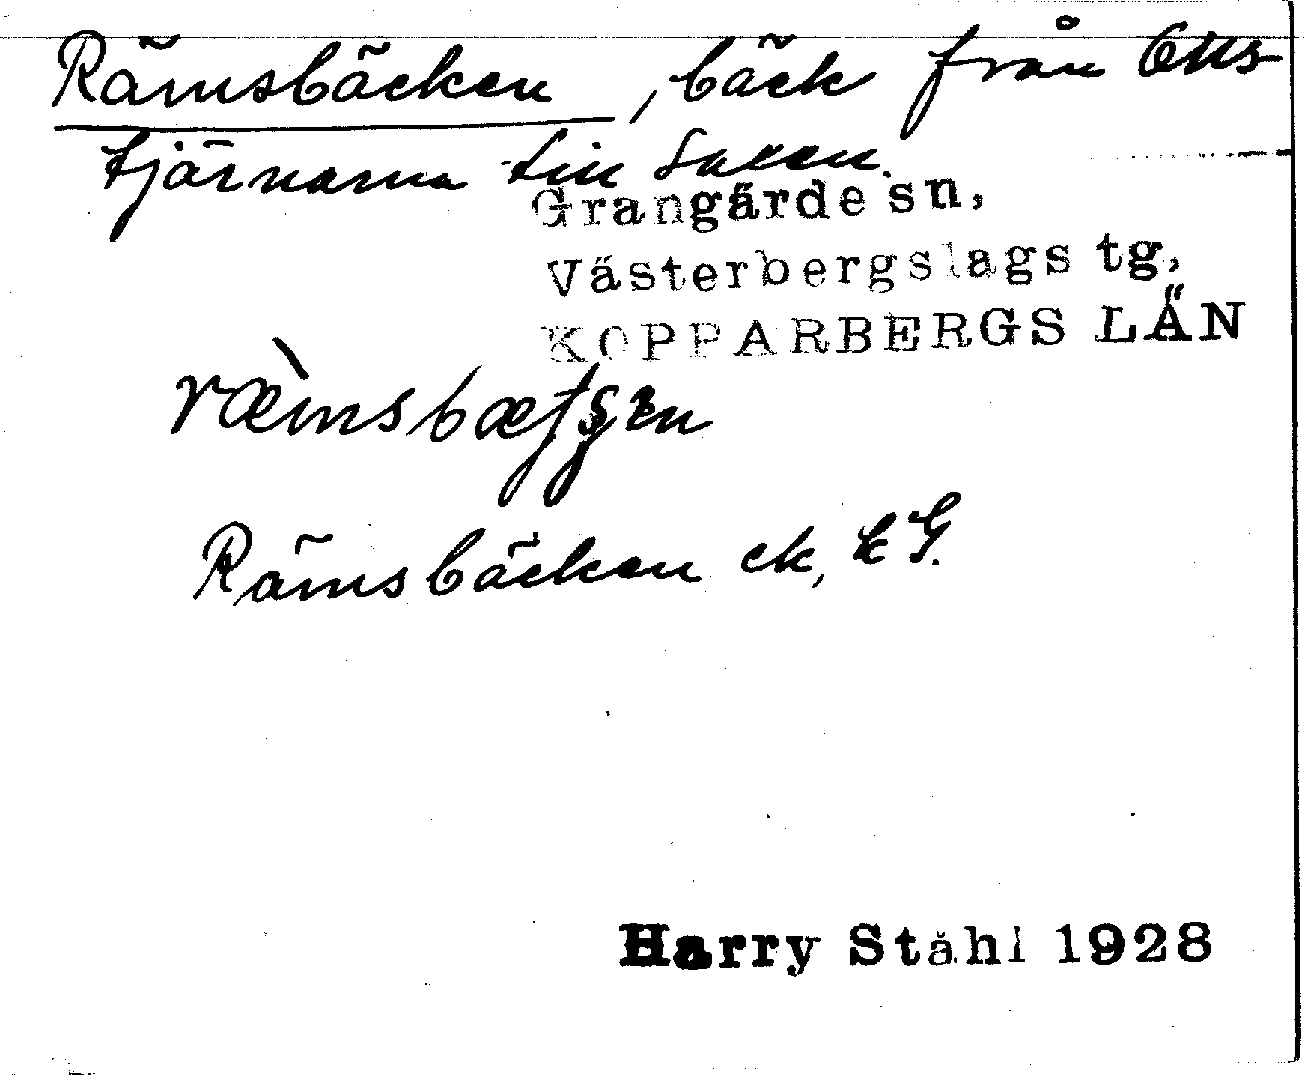 Rämsbäcken, bäck från
tjärnarna till Saxen.
Grangärde sn,
Västerbergslags tg,
KOPPARBERGS LÄN
Rämsbäcken ek, k G.
Harry Ståhl 1928